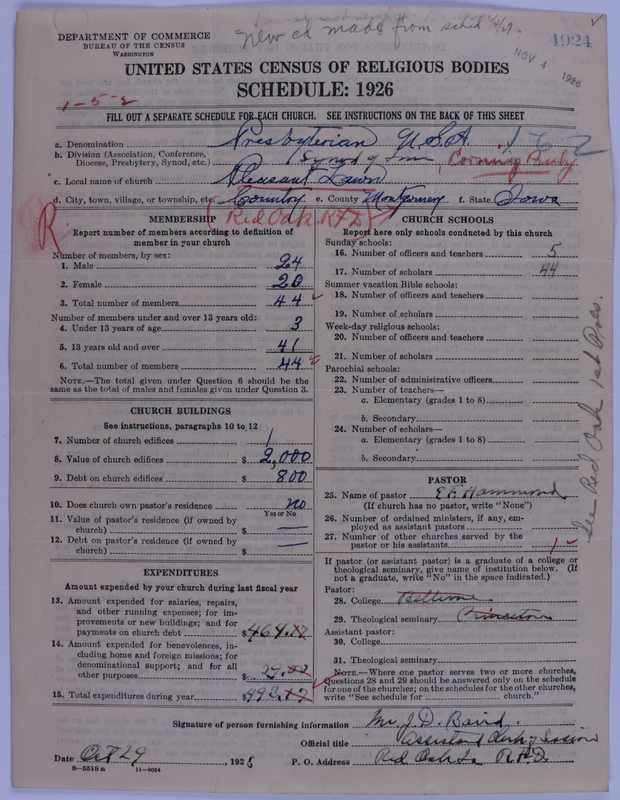 New cd made from sched 4/4/29
4924
NOV 4 1926
DEPARTMENT OF COMMERCE
BUREAU OF THE CENSUS
WASHINGTON
UNITED STATES CENSUS OF RELIGIOUS BODIES
SCHEDULE: 1926
1-5-2
FILL OUT A SEPARATE SCHEDULE FOR EACH CHURCH. SEE INSTRUCTIONS ON THE BACK OF THIS SHEET
a. Denomination Presbyterian U.S.A.
b. Division (Association, Conference, Diocese, Presbytery, Synod, etc.) Synod of Corning Presby
c. Local name of church Pleasant Lawn
d. City, town, village, or township, etc. Country e. County Montgomery f. State Iowa
R
Red Oak RFD
MEMBERSHIP
Report number of members according to definition of member in your church
Number of members, by sex:
1. Male 24
2. Female 20
3. Total number of members 44
Number of members under and over 13 years old:
4. Under 13 years of age 3
5. 13 years old and over 41
6. Total number of members 44
NOTE.—The total given under Question 6 should be the same as the total of males and females given under Question 3.
CHURCH BUILDINGS
See instructions, paragraphs 10 to 12
7. Number of church edifices 1
8. Value of church edifices $ 2,000
9. Debt on church edifices $ 800
10. Does church own pastor's residence no
Yes or No
11. Value of pastor's residence (if owned by church) $ —
12. Debt on pastor's residence (if owned by church) $ —
EXPENDITURES
Amount expended by your church during last fiscal year
13. Amount expended for salaries, repairs, and other running expenses; for improvements or new buildings; and for payments on church debt $ 464.17
14. Amount expended for benevolences, including home and foreign missions; for denominational support; and for all other purposes $
15. Total expenditures during year $ 493.17
CHURCH SCHOOLS
Report here only schools conducted by this church
Sunday schools:
16. Number of officers and teachers 5
17. Number of scholars 44
Summer vacation Bible schools:
18. Number of officers and teachers
19. Number of scholars
Week-day religious schools:
20. Number of officers and teachers
21. Number of scholars
Parochial schools:
22. Number of administrative officers
23. Number of teachers—
a. Elementary (grades 1 to 8)
b. Secondary
24. Number of scholars—
a. Elementary (grades 1 to 8)
b. Secondary
See Red Oak 1st Pres.
PASTOR
25. Name of pastor E. E. Hammond
(If church has no pastor, write "None")
26. Number of ordained ministers, if any, employed as assistant pastors
27. Number of other churches served by the pastor or his assistants 1
If pastor (or assistant pastor) is a graduate of a college or theological seminary, give name of institution below. (If not a graduate, write "No" in the space indicated.)
Pastor:
28. College
29. Theological seminary Princeton
Assistant pastor:
30. College
31. Theological seminary
NOTE.—Where one pastor serves two or more churches, Questions 28 and 29 should be answered only on the schedule for one of the churches; on the schedules for the other churches, write "See schedule for church."
Signature of person furnishing information Mr J. D. Baird
Official title Assistant Clerk of Session
Date Oct 29, 1926 P. O. Address Red Oak Ia RFD.
8—5518a 11—9054